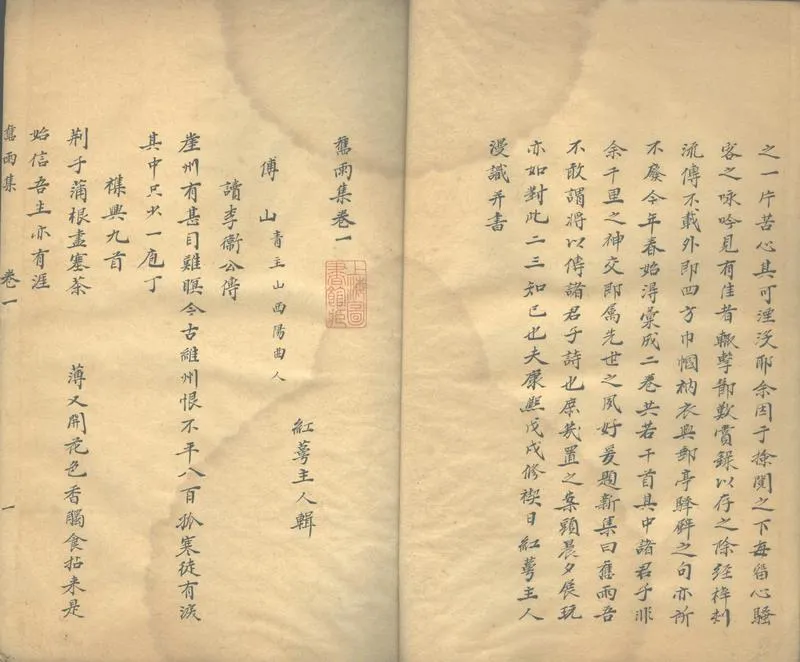 之一片苦心其可湮沒耶余因于撿閱之下每留心騷
客之咏吟見有佳者輒擊節歎賞錄以存之除經梓刻
流傳不載外即四方巾幗衲衣與郵亭驛壁之句亦所
不廢今年春始得彙成二卷共若干首其中諸君子非
余千里之神交即屬先世之夙好爰題新集曰舊雨吾
不敢謂將以傳諸君子詩也庶幾置之案頭晨夕展玩
亦如對此二三知己也夫康熙戊戌修禊日紅蕚主人
漫識并書
舊雨集卷一
上海圖書館藏
紅蕚主人輯
傅山 青主山西陽曲人
讀李衛公傳
崖州有甚目難瞑今古維州恨不平八百孤寒徒有淚
其中只少一庖丁
襍興九首
荊子蒲根盡塞茶 薄又開花色香觸食拈来是
始信吾生亦有涯
舊雨集 卷一 一